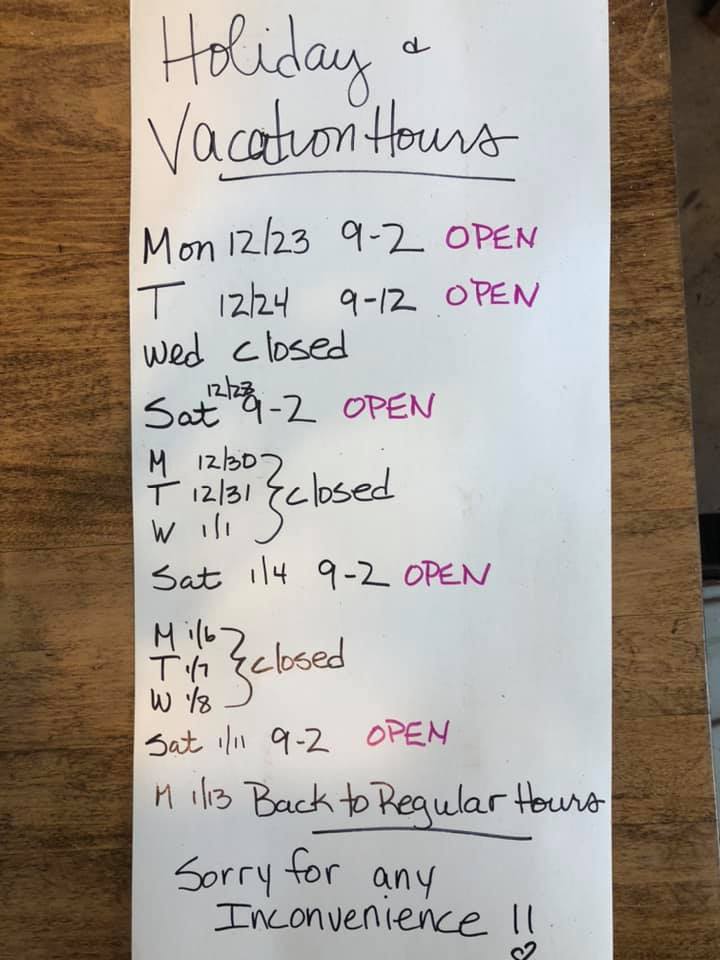 Holiday &
Vacation Hours
Mon 12/23 9-2 OPEN
T 12/24 9-12 OPEN
Wed closed
Sat 12/28 9-2 OPEN
M 12/30
T 12/31 } closed
W 1/1
Sat 1/4 9-2 OPEN
M 1/6
T 1/7 } closed
W 1/8
Sat 1/11 9-2 OPEN
M 1/13 Back to Regular Hours
Sorry for any
Inconvenience !!